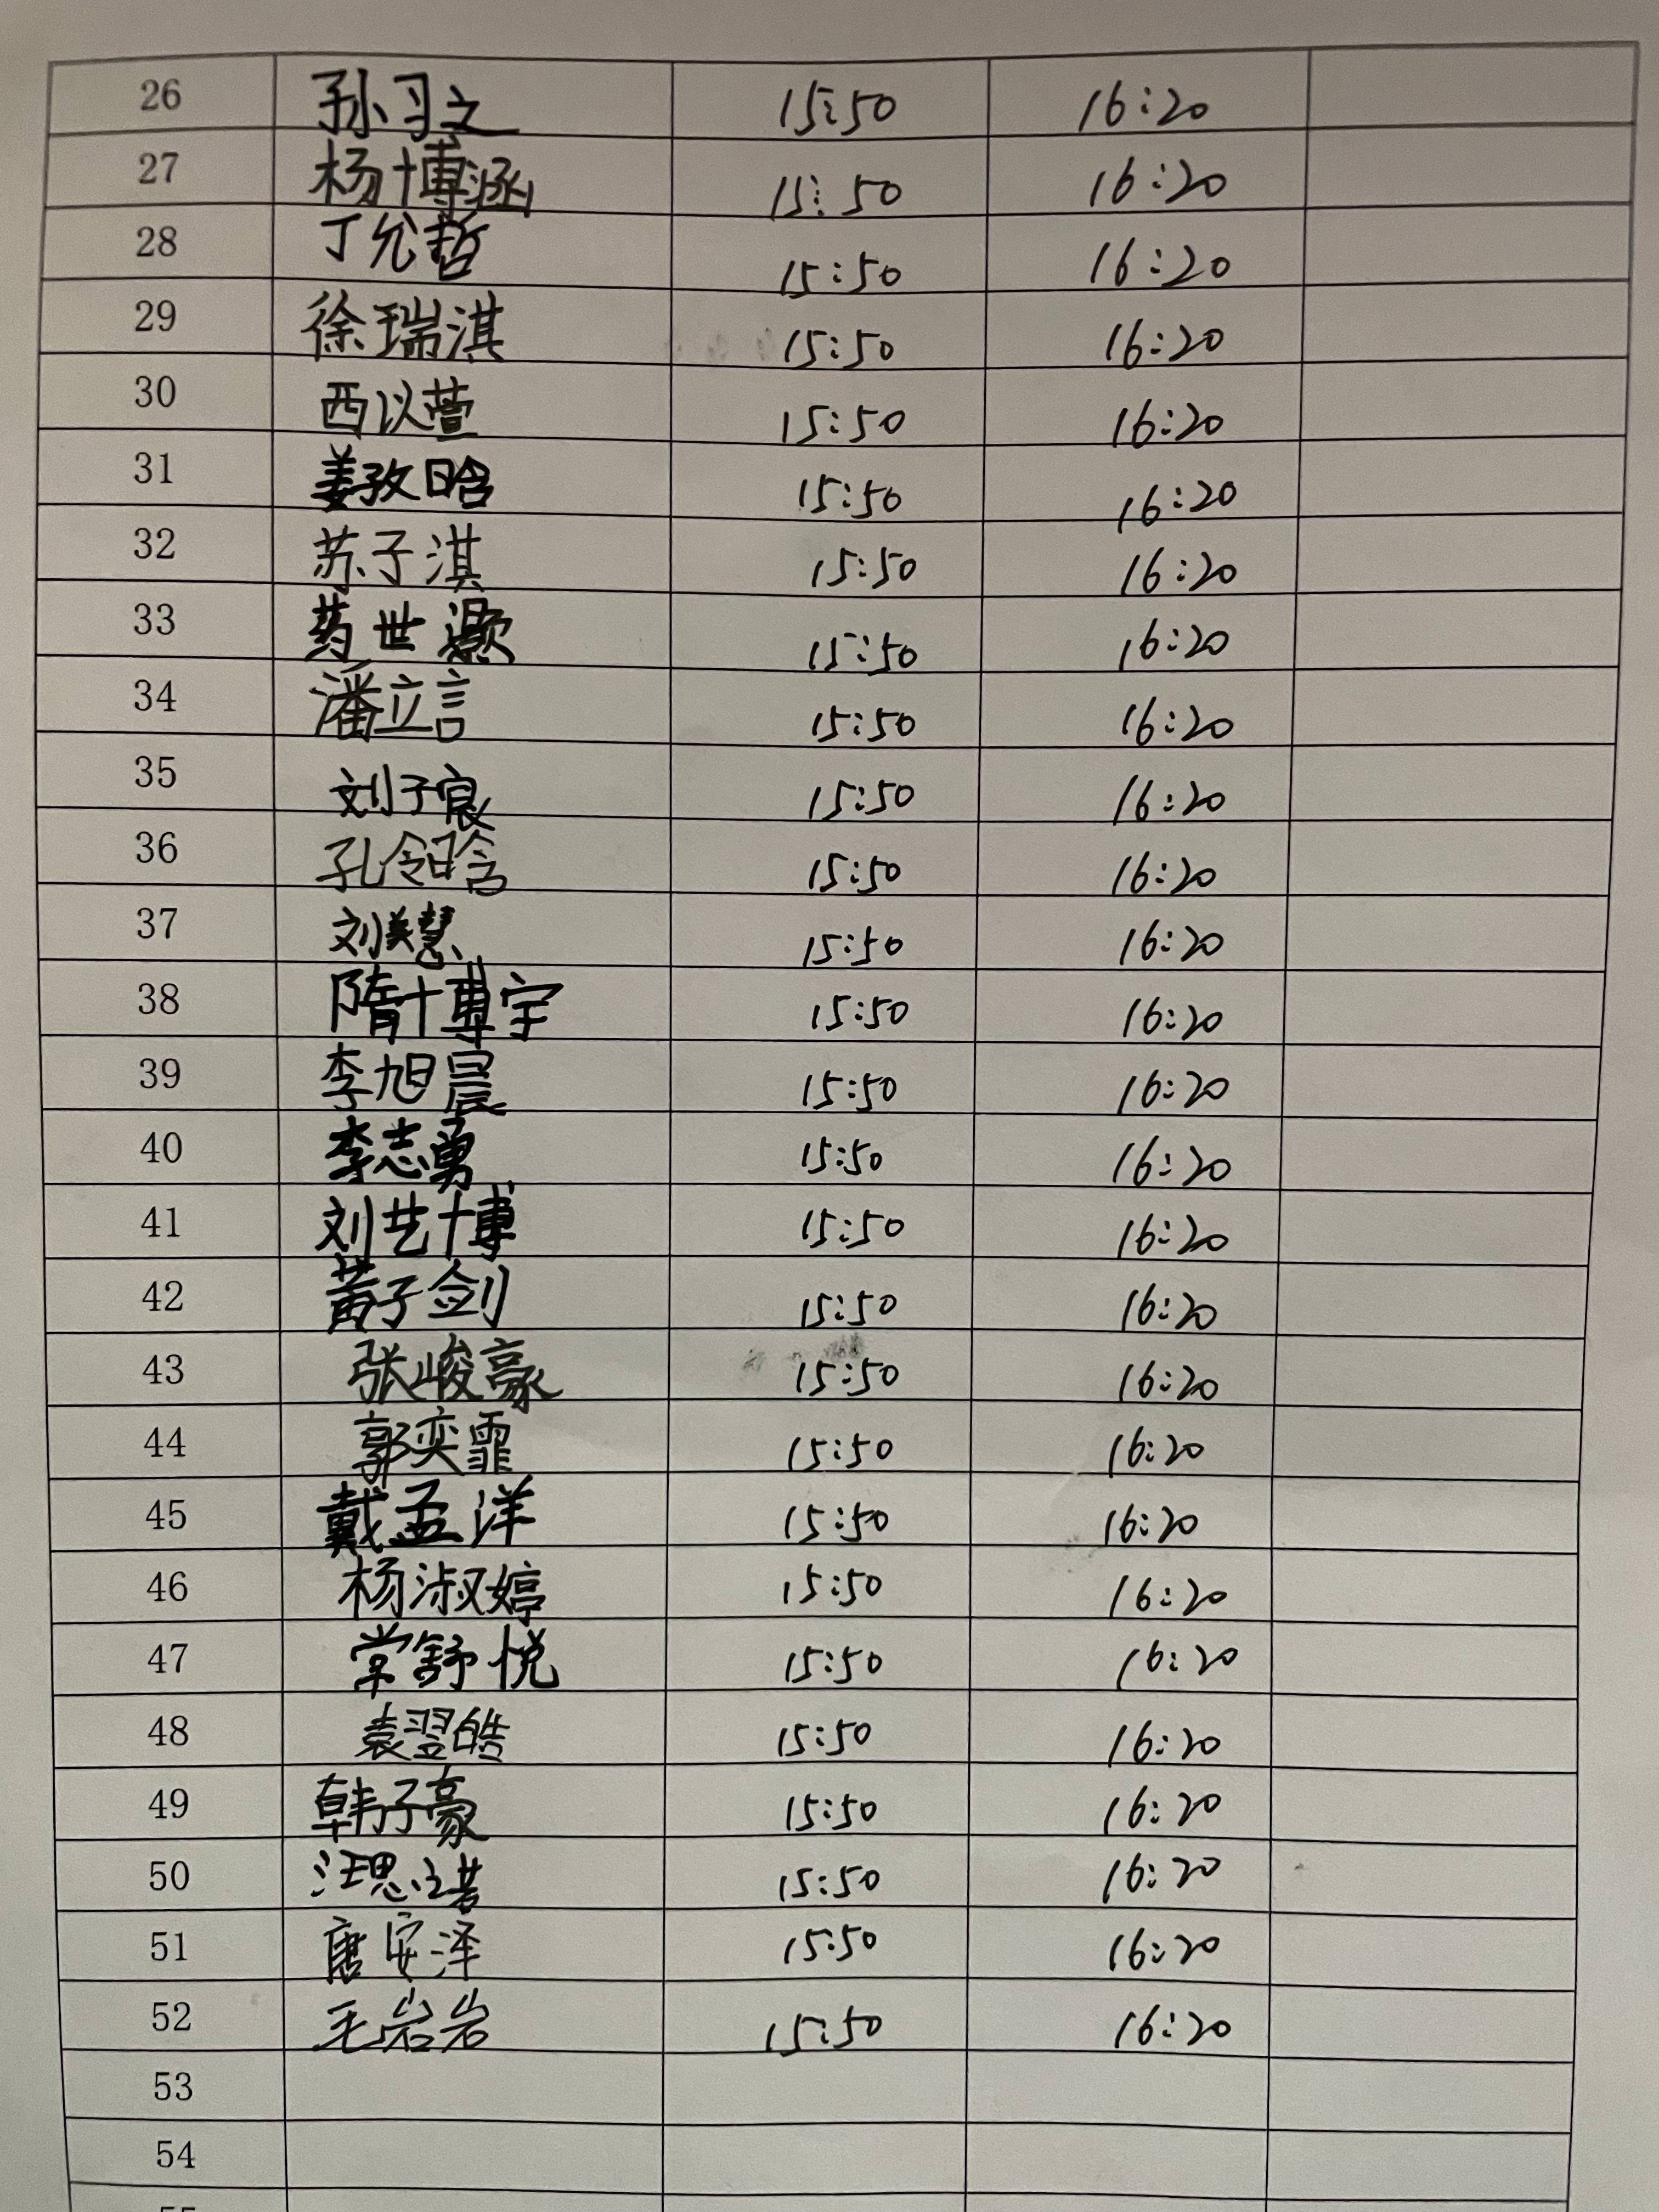 26 孙习之 15:50 16:20
27 杨博涵 15:50 16:20
28 丁允哲 15:50 16:20
29 徐瑞淇 15:50 16:20
30 西以萱 15:50 16:20
31 姜孜晗 15:50 16:20
32 苏子淇 15:50 16:20
33 15:50 16:20
34 潘立言 15:50 16:20
35 刘子宸 15:50 16:20
36 孔令晗 15:50 16:20
37 刘美慧 15:50 16:20
38 隋博宇 15:50 16:20
39 李旭晨 15:50 16:20
40 李志勇 15:50 16:20
41 刘艺博 15:50 16:20
42 黄子剑 15:50 16:20
43 张峻豪 15:50 16:20
44 郭奕霏 15:50 16:20
45 戴孟洋 15:50 16:20
46 杨淑婷 15:50 16:20
47 常舒悦 15:50 16:20
48 袁翌皓 15:50 16:20
49 韩子豪 15:50 16:20
50 15:50 16:20
51 唐安泽 15:50 16:20
52 毛岩岩 15:50 16:20
53
54